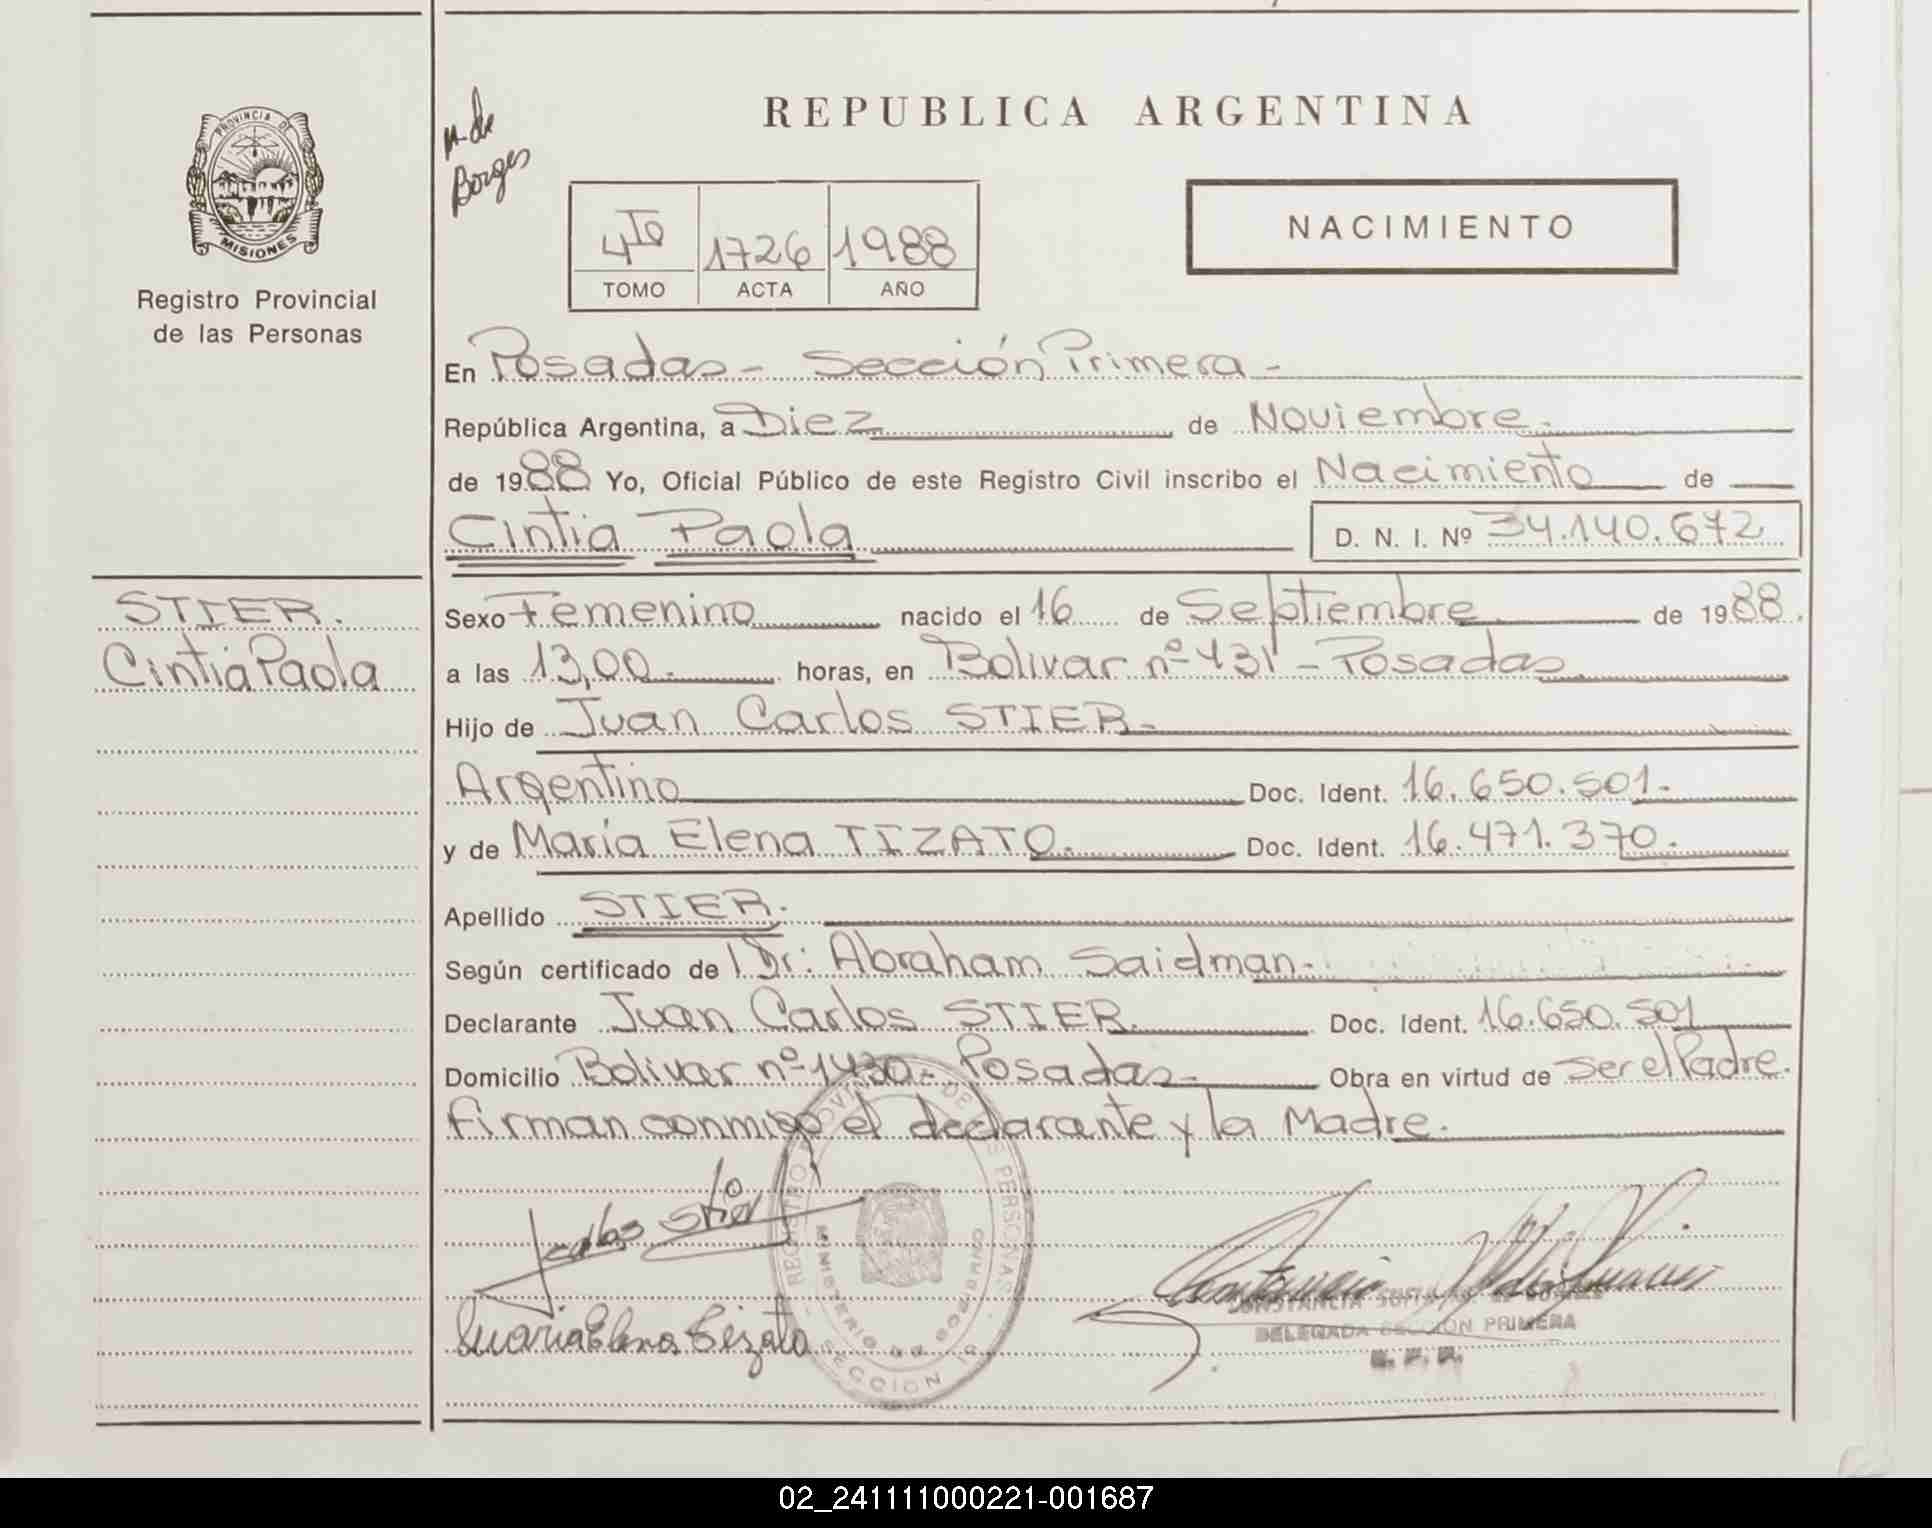 REPUBLICA ARGENTINA
PROVINCIA DE
MISIONES
Registro Provincial
de las Personas
n. de
Borges
4to 1726 1988
TOMO ACTA AÑO
NACIMIENTO
En Posadas - Sección Primera -
República Argentina, a Diez de Noviembre.
de 1988 Yo, Oficial Público de este Registro Civil inscribo el Nacimiento de
Cintia Paola D. N. I. Nº 34.140.672
STIER.
Cintia Paola
Sexo Femenino nacido el 16 de Septiembre de 1988.
a las 13,00.- horas, en Bolivar nº 431 - Posadas
Hijo de Juan Carlos STIER.-
Argentino Doc. Ident. 16.650.501.-
y de María Elena TIZATO. Doc. Ident. 16.471.370.-
Apellido STIER.
Según certificado de Dr: Abraham Saidman.
Declarante Juan Carlos STIER. Doc. Ident. 16.650.501
Domicilio Bolivar nº 1430 - Posadas - Obra en virtud de ser el Padre.
firman conmigo el declarante y la Madre.
J carlos Stier
Maria Elena Tizato
REGISTRO PROVINCIAL DE LAS PERSONAS
MINISTERIO DE GOBIERNO
SECCION 1a
CONSTANCIA
DELEGADA SECCION PRIMERA
R. P. P.
02_241111000221-001687